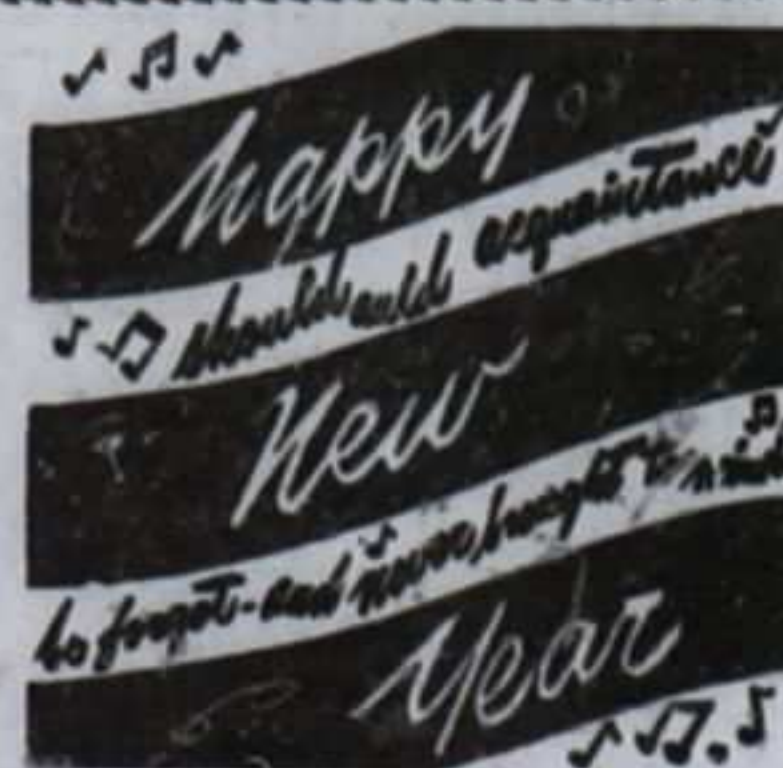 happy
should auld acquaintance
New
be forgot - and never brought to mind
Year